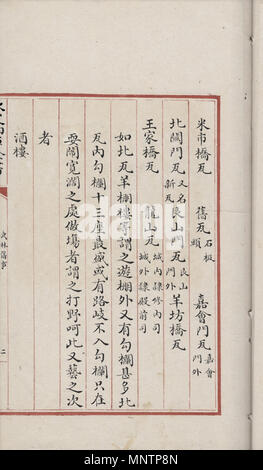 米市橋瓦 舊瓦石板頭 嘉會門瓦嘉會門外
北關門瓦又名新瓦 艮山門瓦艮山門外 羊坊橋瓦
王家橋瓦 龍山瓦城內隸修內司城外隸殿前司
如北瓦羊棚樓等謂之遊棚外又有勾欄甚多北
瓦內勾欄十三座最盛或有路岐不入勾欄只在
耍鬧寬濶之處做塲者謂之打野呵此又藝之次
者
酒樓
武林舊事
二
alamy
Image ID: MNTP8N
www.alamy.com